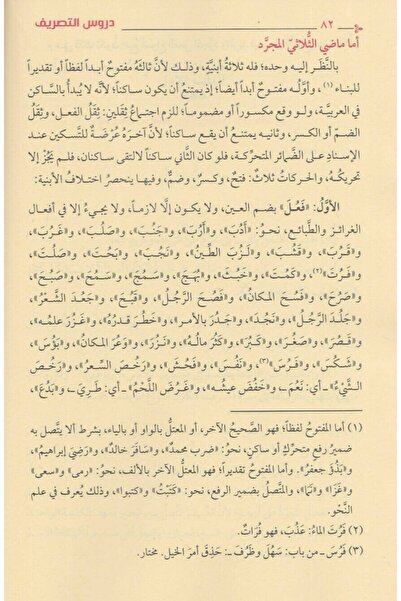 ٨٢ دروس التصريف
أما ماضي الثُّلاثيّ المجرَّد
بالنَّظَر إليه وحده؛ فله ثلاثةُ أبنيَّةٍ، وذلك لأنَّ ثالثَهُ مفتوحٌ أبداً لفظاً أو تقديراً
للبناء (١)، وأوَّلُه مفتوحٌ أبداً أيضاً؛ إذ يمتنعُ أن يكون ساكناً؛ لأنَّه لا يُبدأ بالسَّاكن
في العربية، ولو وقع مكسوراً أو مضموماً؛ للزم اجتماعُ ثِقَلينِ: ثِقَلُ الفعل، وثِقَلُ
الضم أو الكسر، وثانيه يمتنعُ أن يقع ساكناً؛ لأنَّ آخرَهُ عُرْضَةٌ للتَّسكين عند
الإسناد على الضَّمائر المتحرِّكة، فلو كان الثَّاني ساكناً لالتقى ساكنان، فلم يَجُزْ إلا
تحريكُهُ، والحركاتُ ثلاث: فتحٌ، وكسرٌ، وضمٌّ، وفيها ينحصرُ اختلافُ الأبنية:
الأوَّلُ: «فَعُلَ» بضم العين، ولا يكون إلَّا لازماً، ولا يجيءُ إلا في أفعال
الغرائز والطَّبائع، نحوُ: «أَدُبَ»، و«أَرُبَ»، و«جَنُبَ»، و«صَلُبَ»، و«غَرُبَ»،
و«قَرُبَ»، و«قَشُبَ»، و«لَزُبَ الطِّينُ»، و«نَجُبَ»، و«بَحُتَ»، و«صَلُتَ»،
و«فَرُتَ» (٢)، و«كَمُتَ»، و«خَبُثَ»، و«بَهُجَ»، و«سَمُجَ»، و«سَمُحَ»، و«صَبُحَ»،
و«صَرُحَ»، و«فَسُحَ المكانُ»، و«فَصُحَ الرَّجُلُ»، و«قَبُحَ»، و«جَعُدَ الشَّعْرُ»،
و«جَلُدَ الرَّجُلُ»، و«نَجُدَ»، و«جَدُرَ بالأمر»، و«خَطُرَ قدرُهُ»، و«غَزُرَ علمُه»،
و«قَصُرَ»، و«صَغُرَ»، و«كَبُرَ»، و«كَثُرَ مالُهُ»، و«نَزُرَ»، و«وَعُرَ المكانُ»، و«بَؤُسَ»،
و«شَكُسَ»، و«فَرُسَ» (٣)، و«نَفُسَ»، و«فَحُشَ»، و«رَخُصَ السِّعرُ»، و«رَخُصَ
الشَّيْءُ» ـ أي: نَعُمَ ـ، و«خَفُضَ عيشُه»، و«غَرُضَ اللَّحْمُ» ـ أي: طَرِيَ ـ، و«بَدُعَ»،
(١) أما المفتوحُ لفظاً؛ فهو الصَّحيحُ الآخر، أو المعتلُّ بالواو أو بالياء، بشرط ألا يتَّصل به
ضميرُ رفع متحرِّكٍ أو ساكن، نحوُ: «ضرب محمدٌ»، و«سَافَرَ خالدٌ»، و«رَضِيَ إبراهيمُ»،
و«بَذُوَ جعفرٌ». وأما المفتوحُ تقديراً؛ فهو المعتلُّ الآخر بالألف، نحوُ: «رمى» و«سعى»
و«غَزَا» و«نَمَا»، والمتَّصلُ بضمير الرفع، نحو: «كَتَبْتُ» و«كتبوا»، وذلك يُعرف في علم
النَّحْو.
(٢) فَرُتَ الماءُ: عَذُبَ، فهو فُرَاتٌ.
(٣) فَرُسَ ـ من باب: سَهُلَ وظَرُفَ ـ: حَذِقَ أمرَ الخيل. مختار.